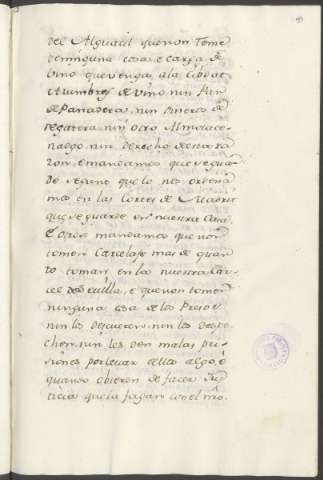 del Alguacil que non Tome
de ninguna cosa e carga de
vino que venga a la Cibdat
Azumbres de vino nin Pan
de Panadera, nin Dineros de
regatera nin otro Almotace-
nadgo nin derecho de esta ra
zon, e mandamos que se guar
de segunt que lo nos ordena
mos en las Cortes de Madrit
que se guarde en nuestra Corte.
E otrosi mandamos que non
tomen Carcelaje mas de quan
to toman en la nuestra Car-
cel de Sevilla, e que non tomen
ninguna cosa de los Presos
nin los despechen nin les den malas pri-
siones por levar dellos algo, e
quando obieren de facer Jus
ticia que la fagan con el mio.